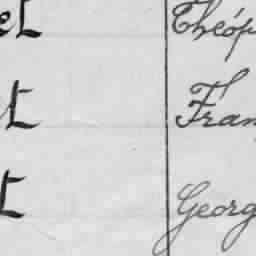 et Théop
t Fran
t Georg